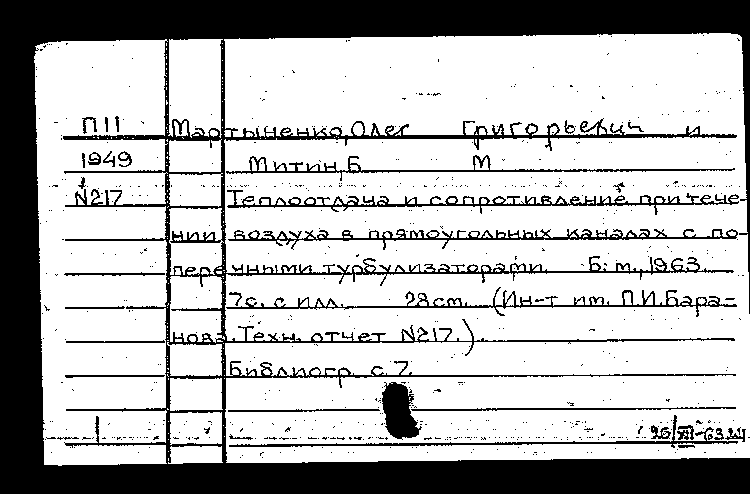 П11 Мартыненко, Олег Григорьевич и
1949 Митин, Б М
№217 Теплоотдача и сопротивление при тече-
нии воздуха в прямоугольных каналах с по-
перечными турбулизаторами. Б. м., 1963.
7с. с илл. 28 см. (Ин-т им. П.И. Бара=
нова. Техн. отчет №217.).
Библиогр. с. 7.
26/XII-63